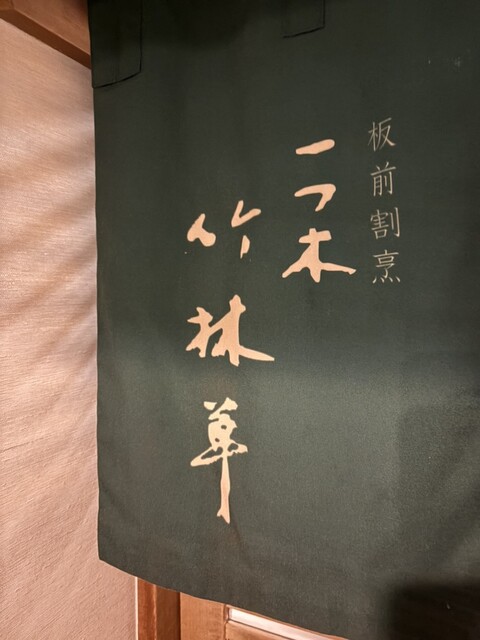 板前割烹
一つ木
竹林草